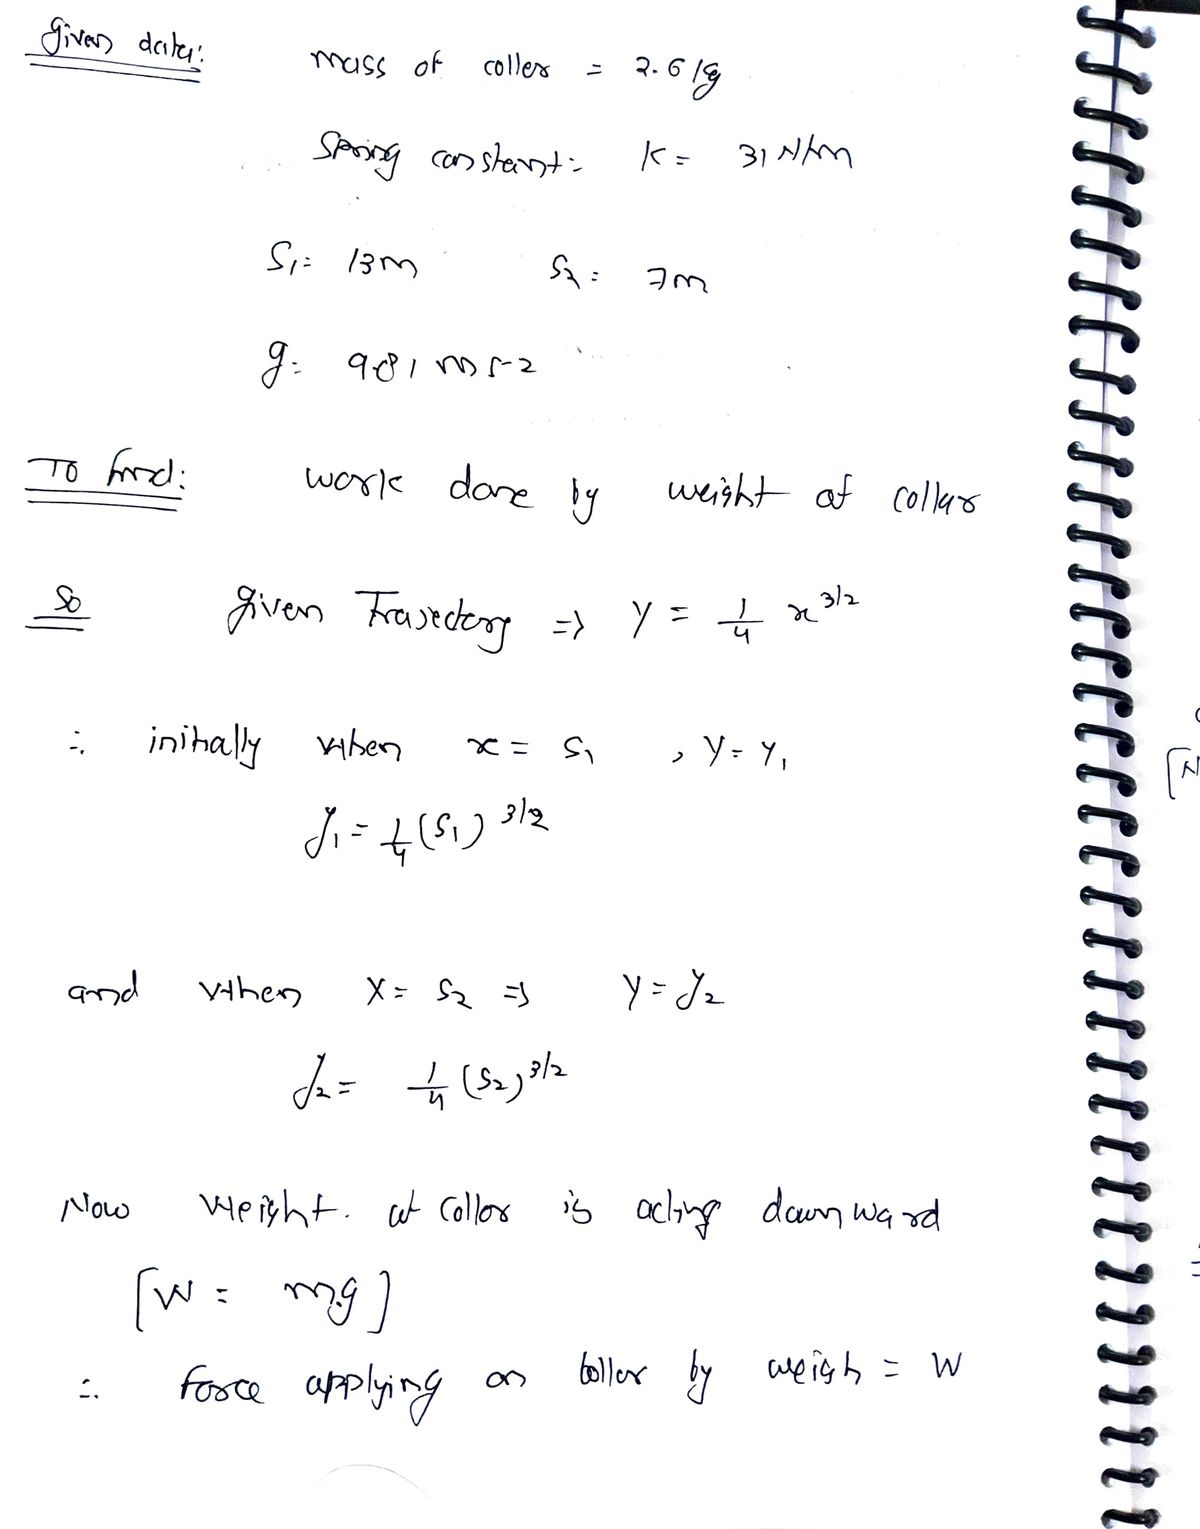 Given data:
mass of coller = 2.6 kg
Spring constant = K = 31 N/m
S1 = 13m S2 = 7m
g = 9.81 ms-2
To find: work done by weight of collar
So given Trajectory => y = 1/4 x^3/2
∴ initially when x = S1 , y = y1
y1 = 1/4 (S1)^3/2
and when x = S2 => y = y2
y2 = 1/4 (S2)^3/2
Now weight of collor is acting downward
[W = mg]
∴ force applying on collor by weigh = W